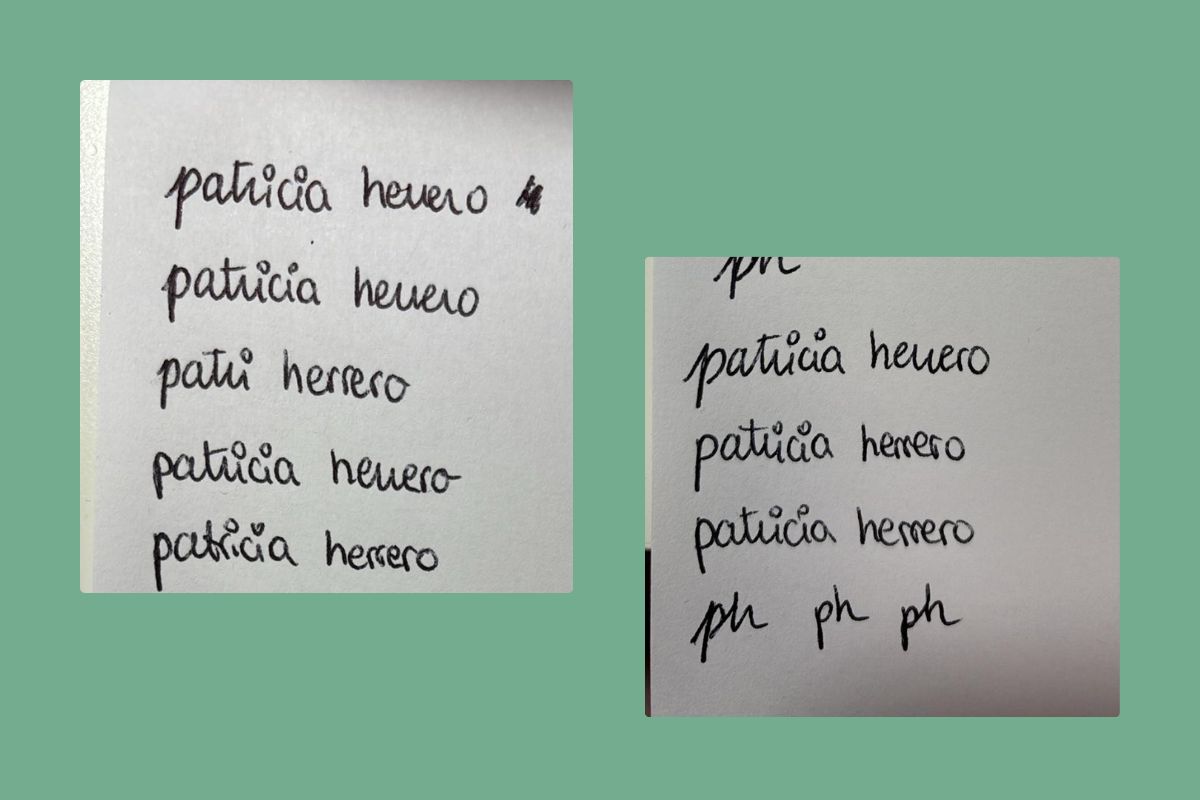 patricia herrero
patricia herrero
patri herrero
patricia herrero
patricia herrero
ph
patricia herrero
patricia herrero
patricia herrero
ph ph ph